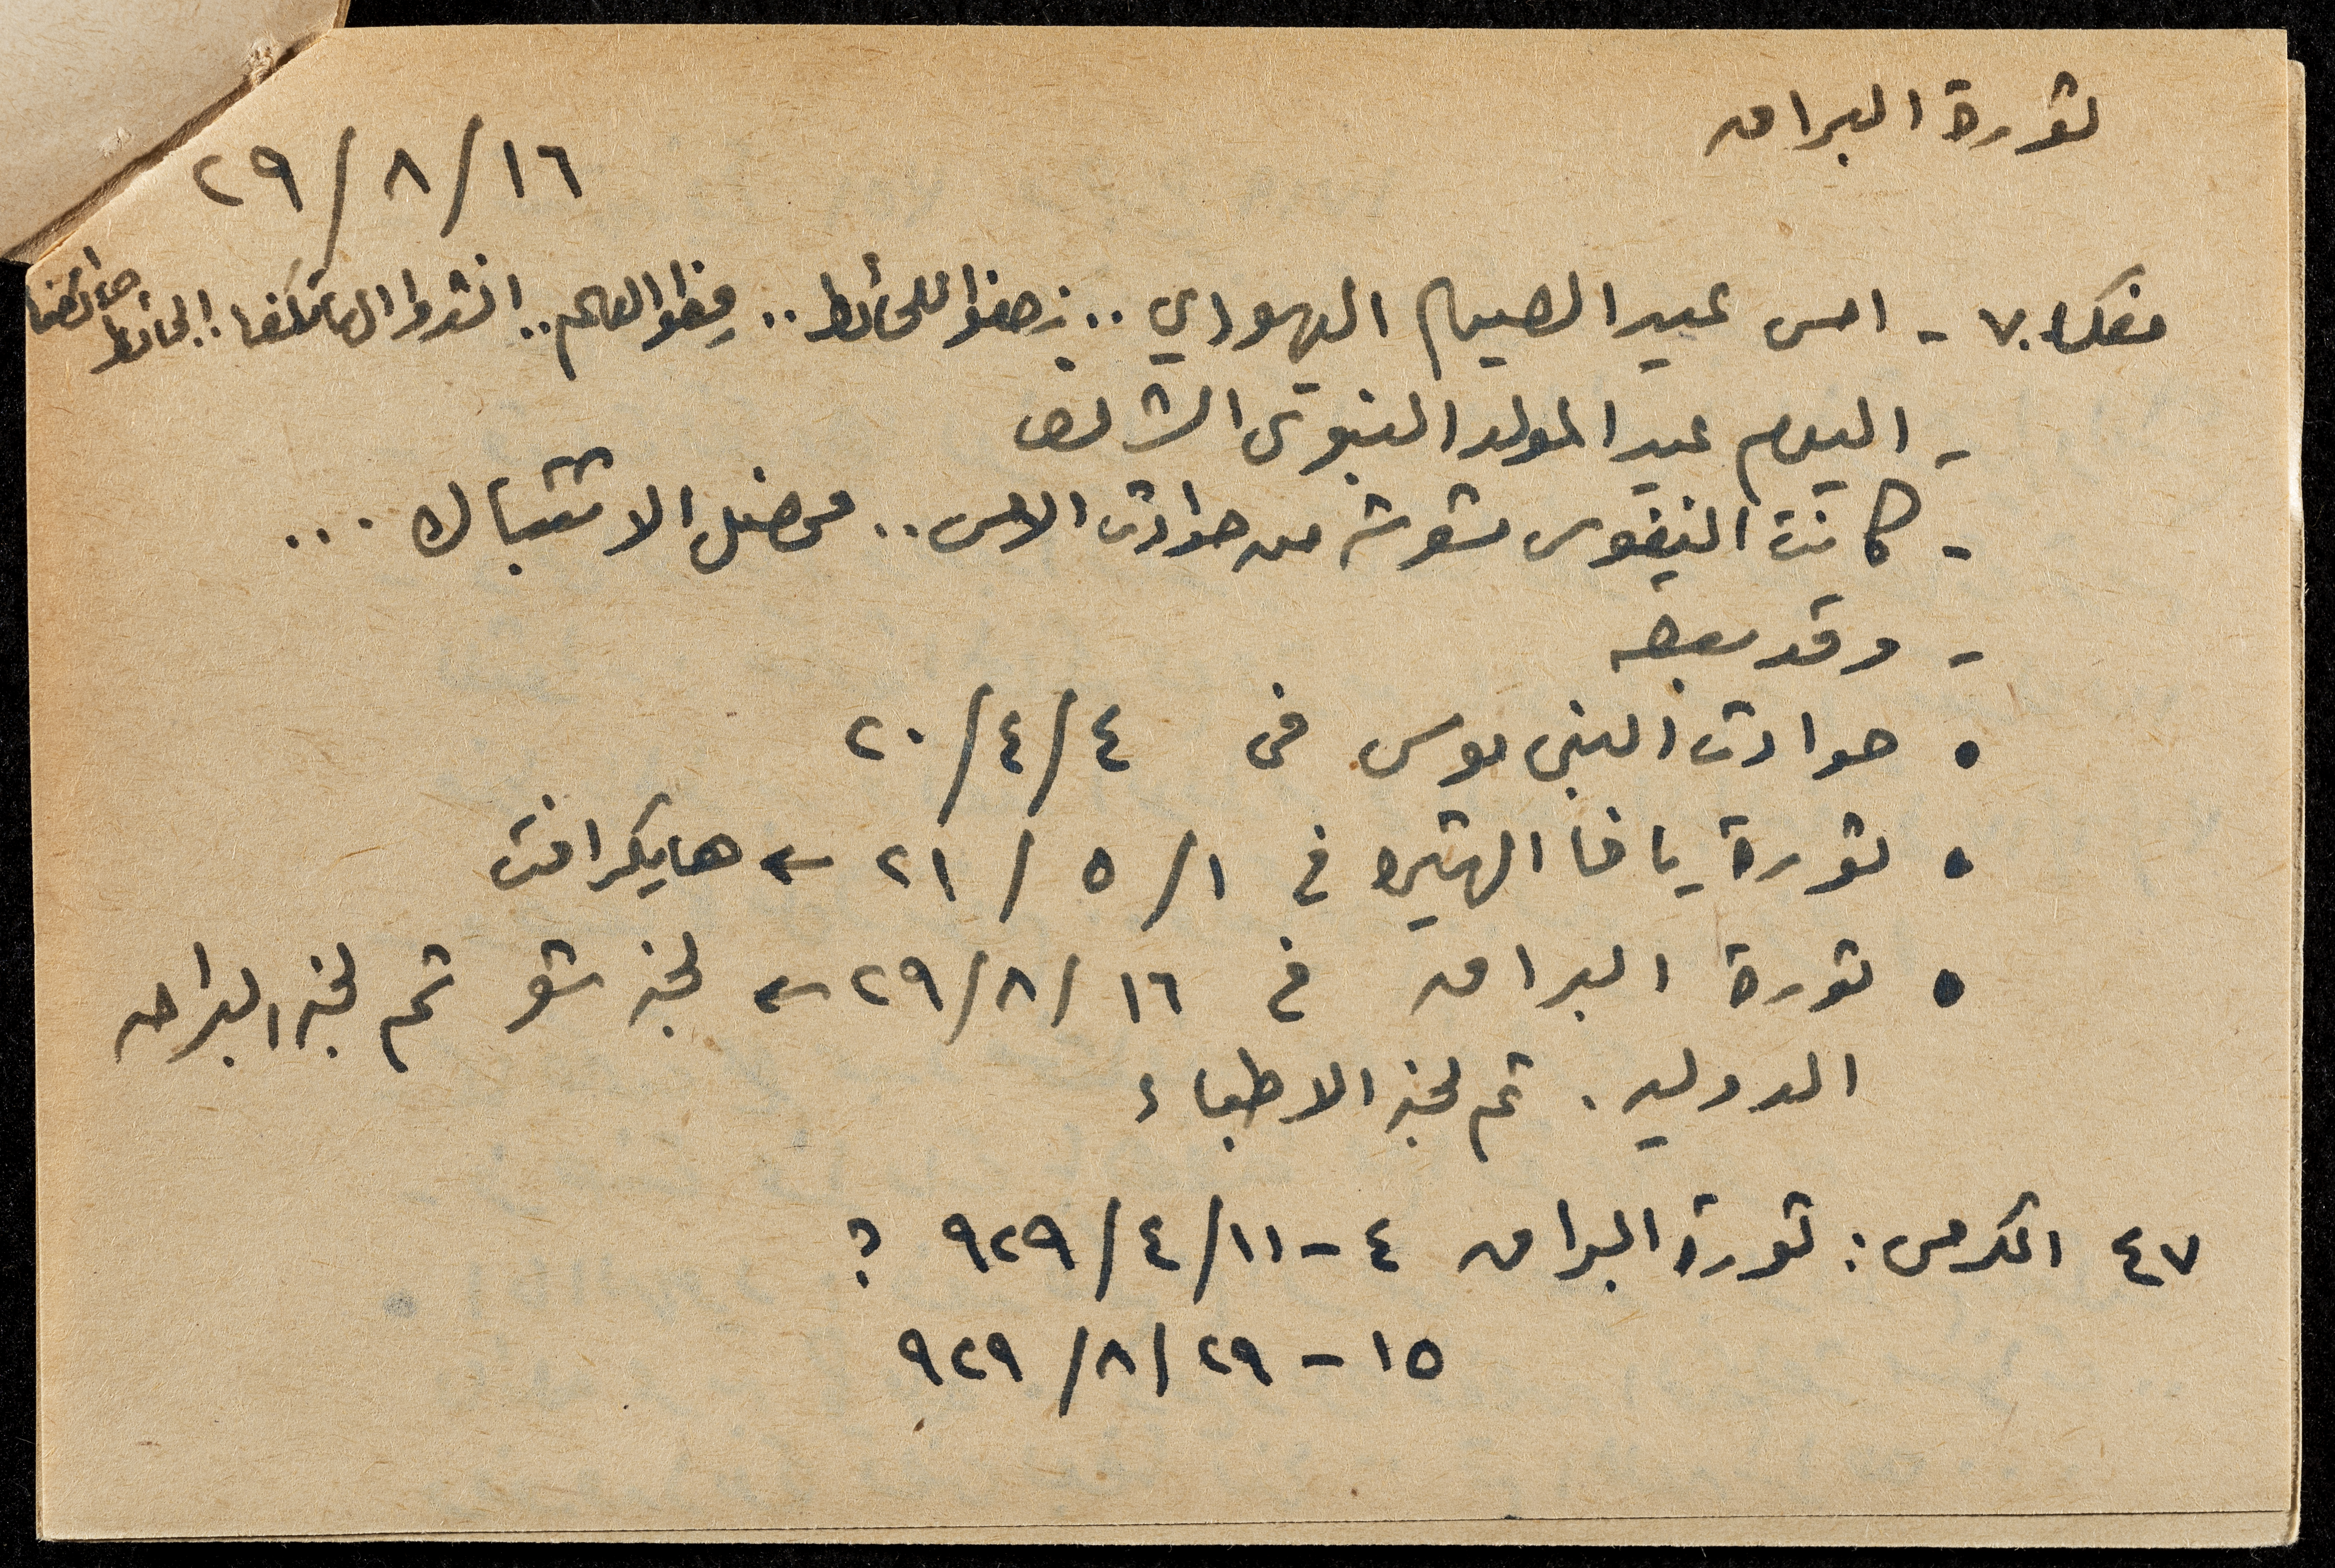 ثورة البراق
١٦/٨/٢٩
مفكرة ٧٠ - امس عيد الصيام اليهودي .. زحفوا للحائط .. رفعوا العلم .. انشدوا الهاتكفا .. الحائط حائطنا
- اليوم عيد المولد النبوى الشريف
- كانت النفوس متوترة من حوادث الامس .. فحصل الاشتباك ...
- وقد سبقه
• حوادث النبى موسى فى ٤/٤/٢٠
• ثورة يافا الشهيرة في ١/٥/٢١ ← هايكرافت
• ثورة البراق في ١٦/٨/٢٩ ← لجنة شو ثم لجنة البراق
الدولية . ثم لجنة الاطباء
٤٧ الكرمى : ثورة البراق ٤-١١/٤/٩٢٩ ؟
١٥-٢٩/٨/٩٢٩